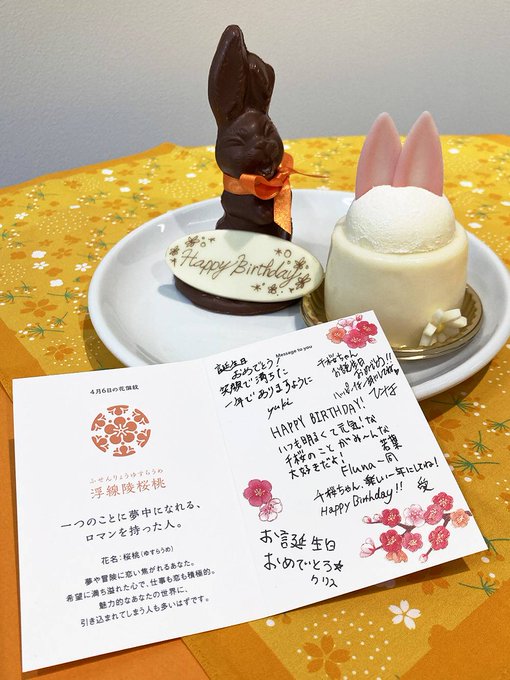 Happy Birthday
4月6日の花個紋
ふせんりょうゆすらうめ
浮線陵桜桃
一つのことに夢中になれる、
ロマンを持った人。
花名:桜桃(ゆすらうめ)
夢や冒険に恋い焦がれるあなた。
希望に満ち溢れた心で、仕事も恋も積極的。
魅力的なあなたの世界に、
引き込まれてしまう人も多いはずです。
Message to you
誕生日
おめでとう!
笑顔で満ちた
一年でありますように
yuki
千桜ちゃん
お誕生日
おめでとう!!
HAPPY BIRTHDAY!
いつも明るくて元気な
千桜のことがみーんな
大好きだよ!
若葉
Fluna一同
千桜ちゃん、楽しい一年にしてね!
Happy Birthday!!
愛
お誕生日
おめでとう
クリス